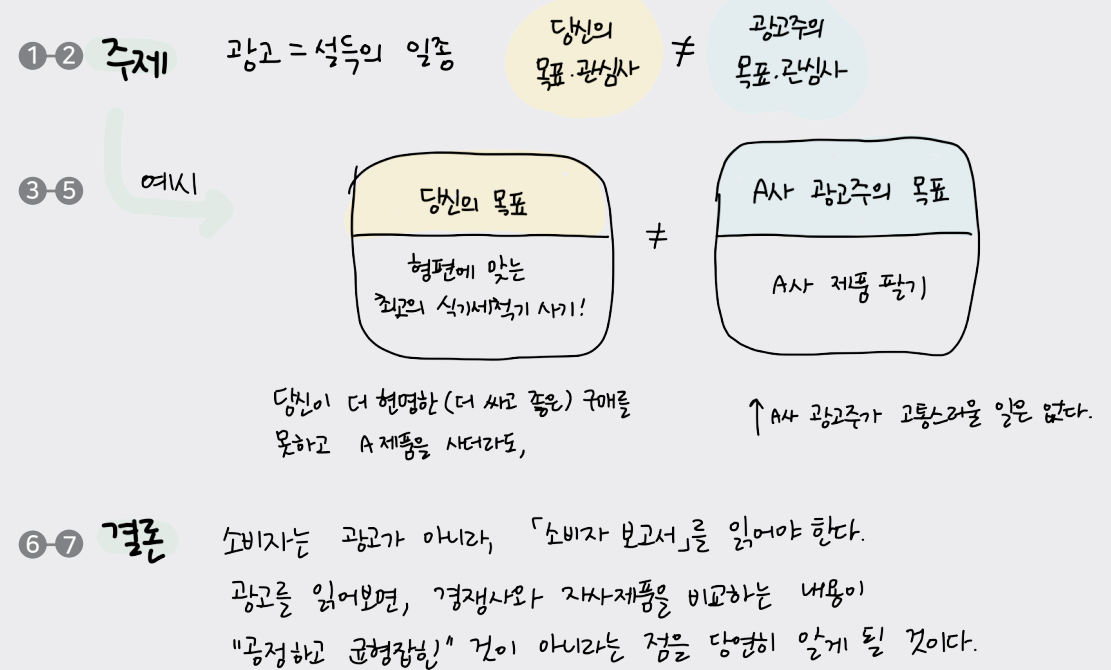 ①-② 주제 광고 = 설득의 일종 당신의 목표·관심사 ≠ 광고주의 목표·관심사
③-⑤ 예시
당신의 목표 ≠ A사 광고주의 목표
형편에 맞는
최고의 식기세척기 사기!
A사 제품 팔기
당신이 더 현명한 (더 싸고 좋은) 구매를
못하고 A제품을 사더라도,
↑ A사 광고주가 고통스러울 일은 없다.
⑥-⑦ 결론 소비자는 광고가 아니라, 「소비자 보고서」를 읽어야 한다.
광고를 읽어보면, 경쟁사와 자사제품을 비교하는 내용이
"공정하고 균형잡힌" 것이 아니라는 점을 당연히 알게 될 것이다.